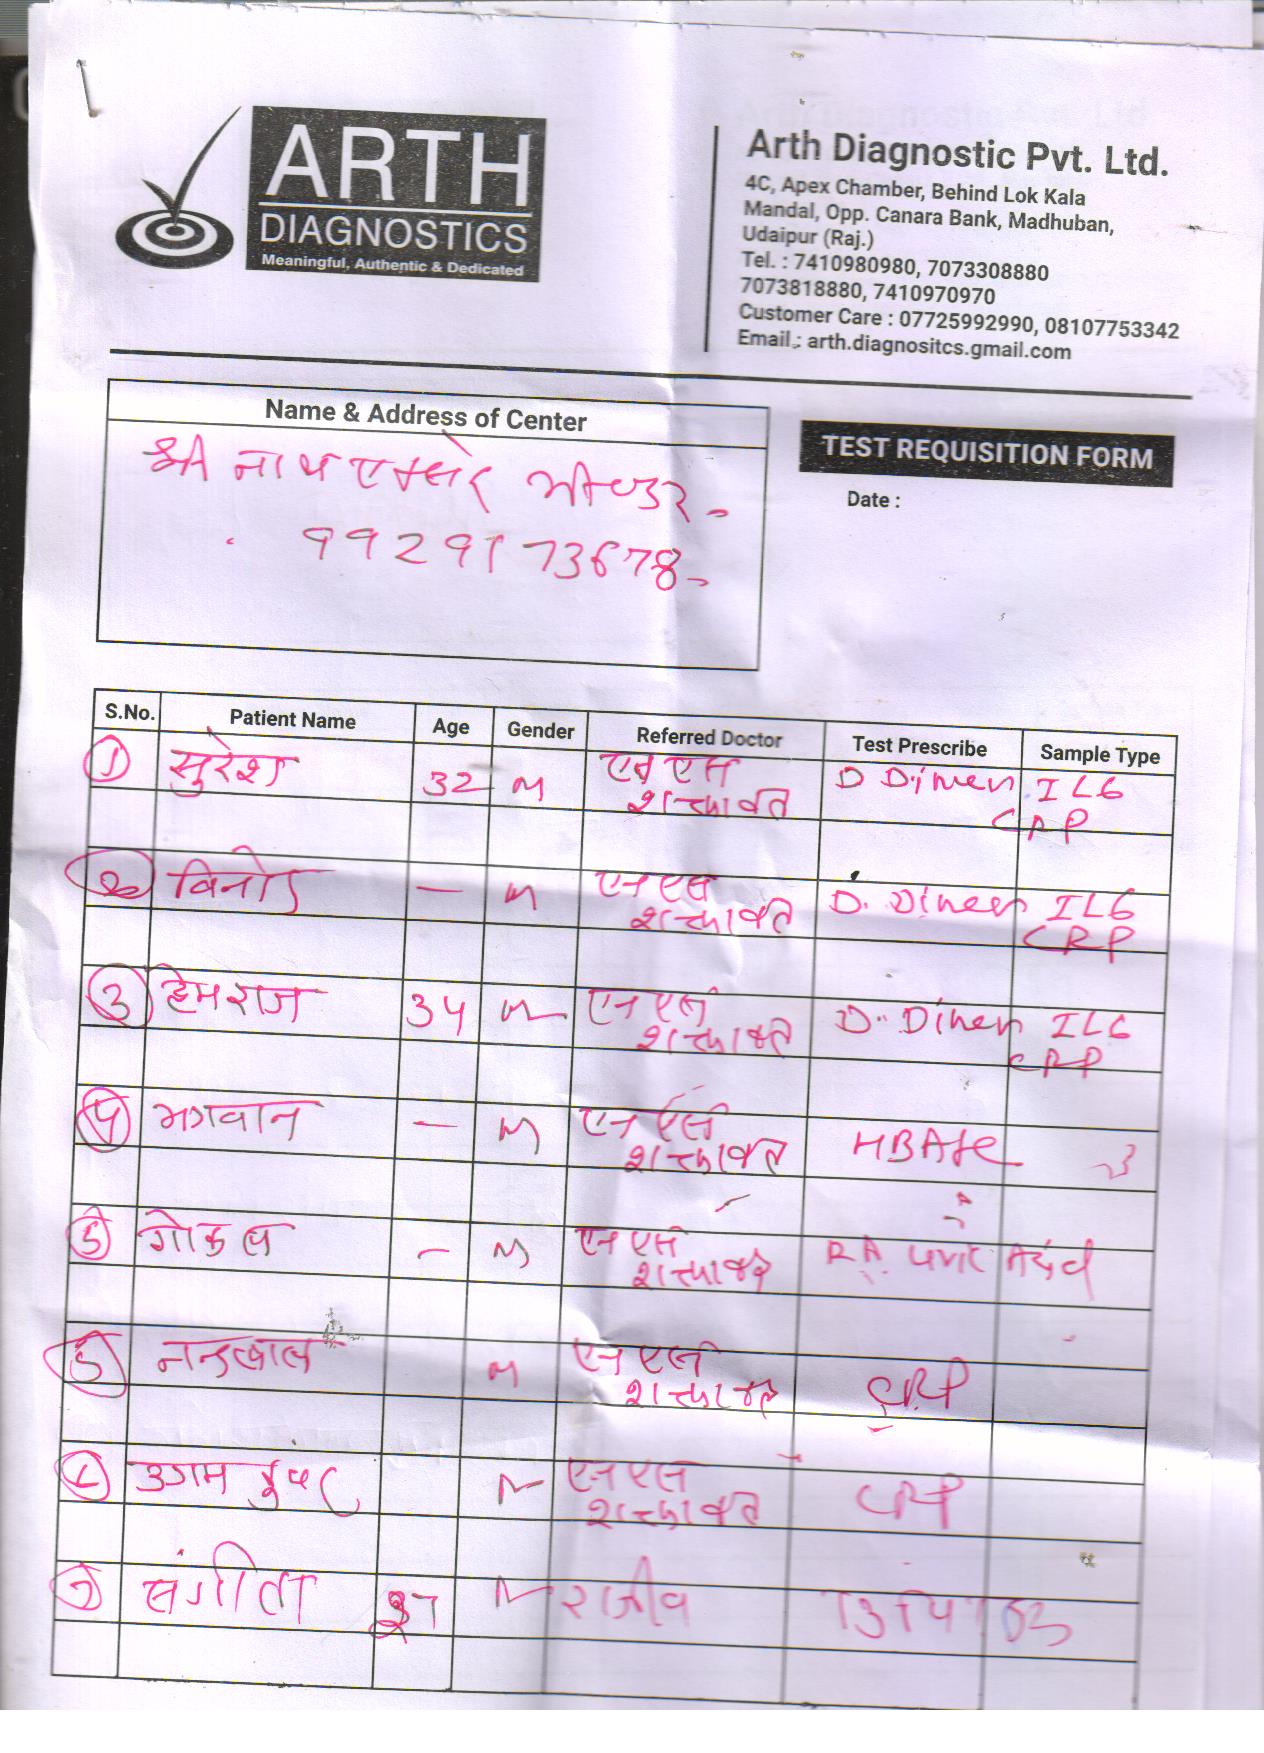 ARTH
DIAGNOSTICS
Meaningful, Authentic & Dedicated
Arth Diagnostic Pvt. Ltd.
4C, Apex Chamber, Behind Lok Kala
Mandal, Opp. Canara Bank, Madhuban,
Udaipur (Raj.)
Tel. : 7410980980, 7073308880
7073818880, 7410970970
Customer Care : 07725992990, 08107753342
Email : arth.diagnositcs.gmail.com
Name & Address of Center
श्री नाथ
9929173678
TEST REQUISITION FORM
Date :
S.No. Patient Name Age Gender Referred Doctor Test Prescribe Sample Type
1 सुरेश 32 M एन एस D Dimer IL6
शक्तावत CRP
2 विनोद — M एन एस D. Dimer IL6
शक्तावत CRP
3 हेमराज 34 M एन एस D. Dimer IL6
शक्तावत CRP
4 भगवान — M एन एस HBA1c
शक्तावत
5 गोकल — M एन एस RA Uric Acid
शक्तावत
5 नन्दलाल M एन एस CRP
शक्तावत
उगम एन एस CRP
शक्तावत
7 संगीता 37 राजीव T3 T4